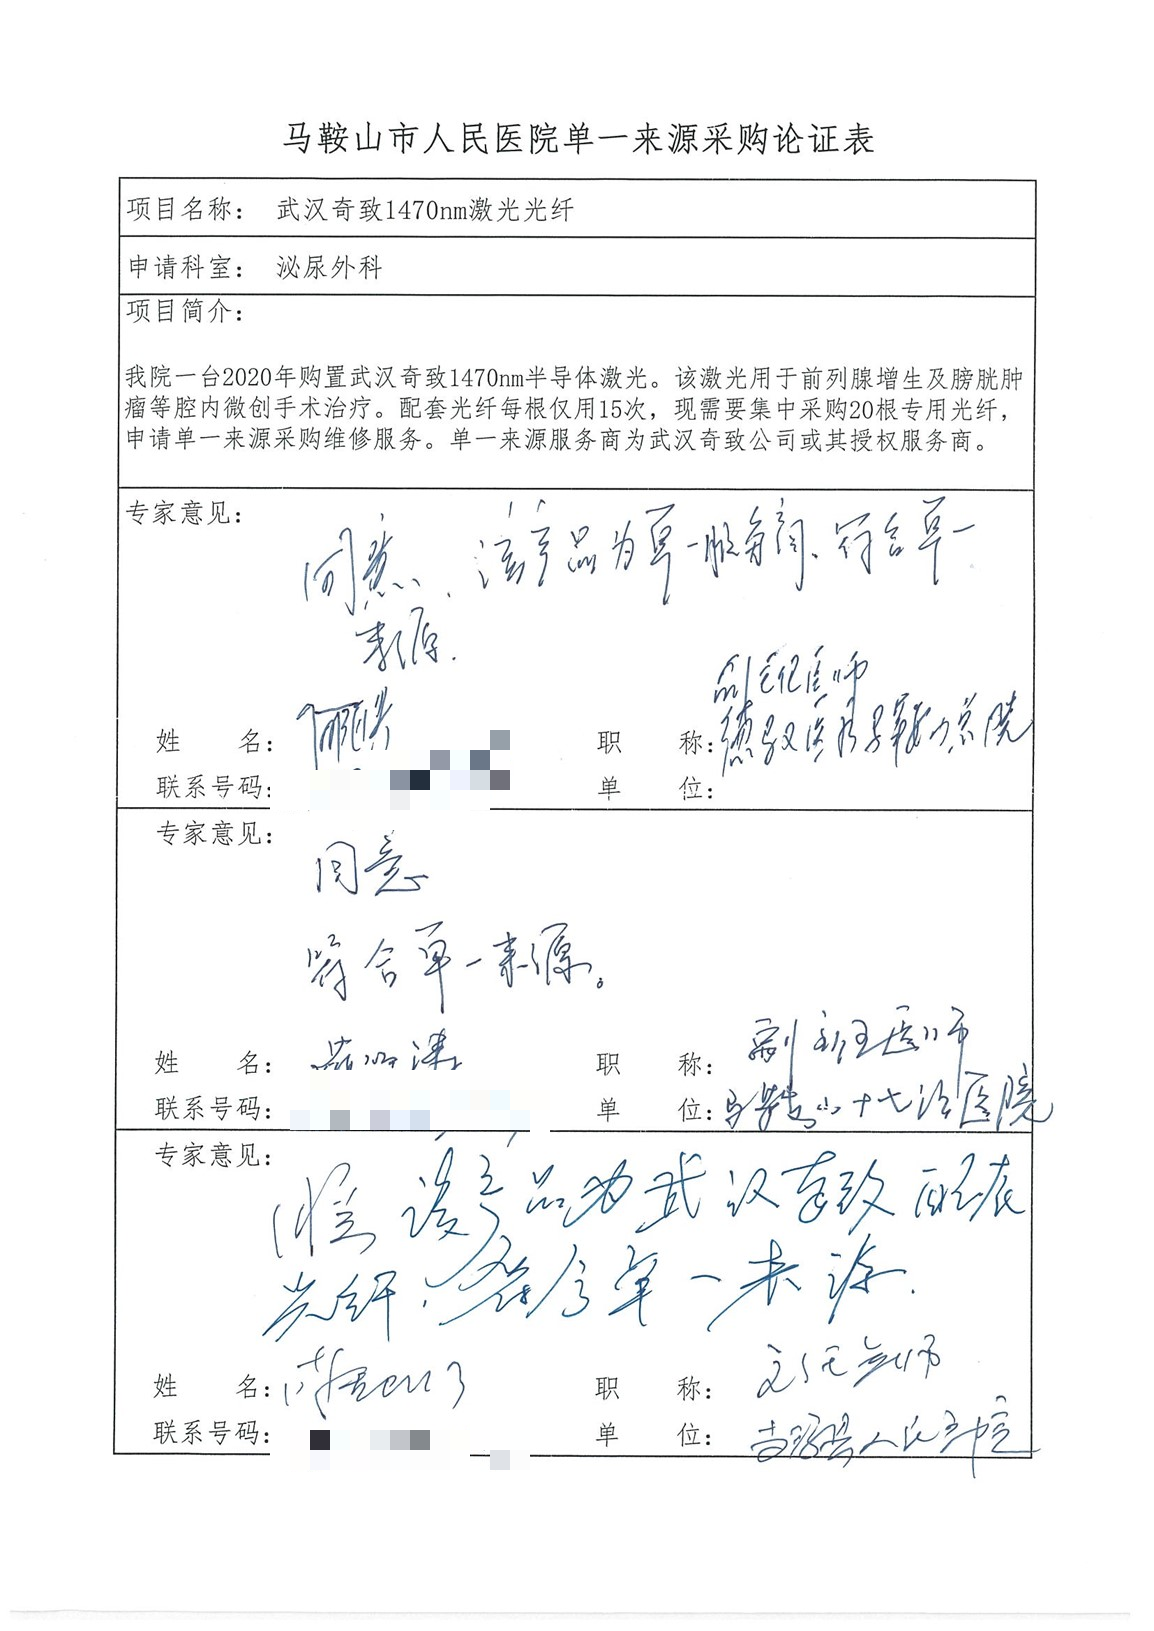 马鞍山市人民医院单一来源采购论证表
项目名称： 武汉奇致1470nm激光光纤
申请科室： 泌尿外科
项目简介：
我院一台2020年购置武汉奇致1470nm半导体激光。该激光用于前列腺增生及膀胱肿
瘤等腔内微创手术治疗。配套光纤每根仅用15次，现需要集中采购20根专用光纤，
申请单一来源采购维修服务。单一来源服务商为武汉奇致公司或其授权服务商。
专家意见：
同意、该产品为单一服务商、符合单一
来源.
姓 名： 职 称： 副主任医师
联系号码： 单 位：
专家意见：
同意
符合单一来源。
姓 名： 职 称： 副主任医师
联系号码： 单 位： 马鞍山十七冶医院
专家意见：
同意 该产品为武汉奇致配套
光纤，符合单一来源.
姓 名： 职 称： 主任医师
联系号码： 单 位： 人民医院